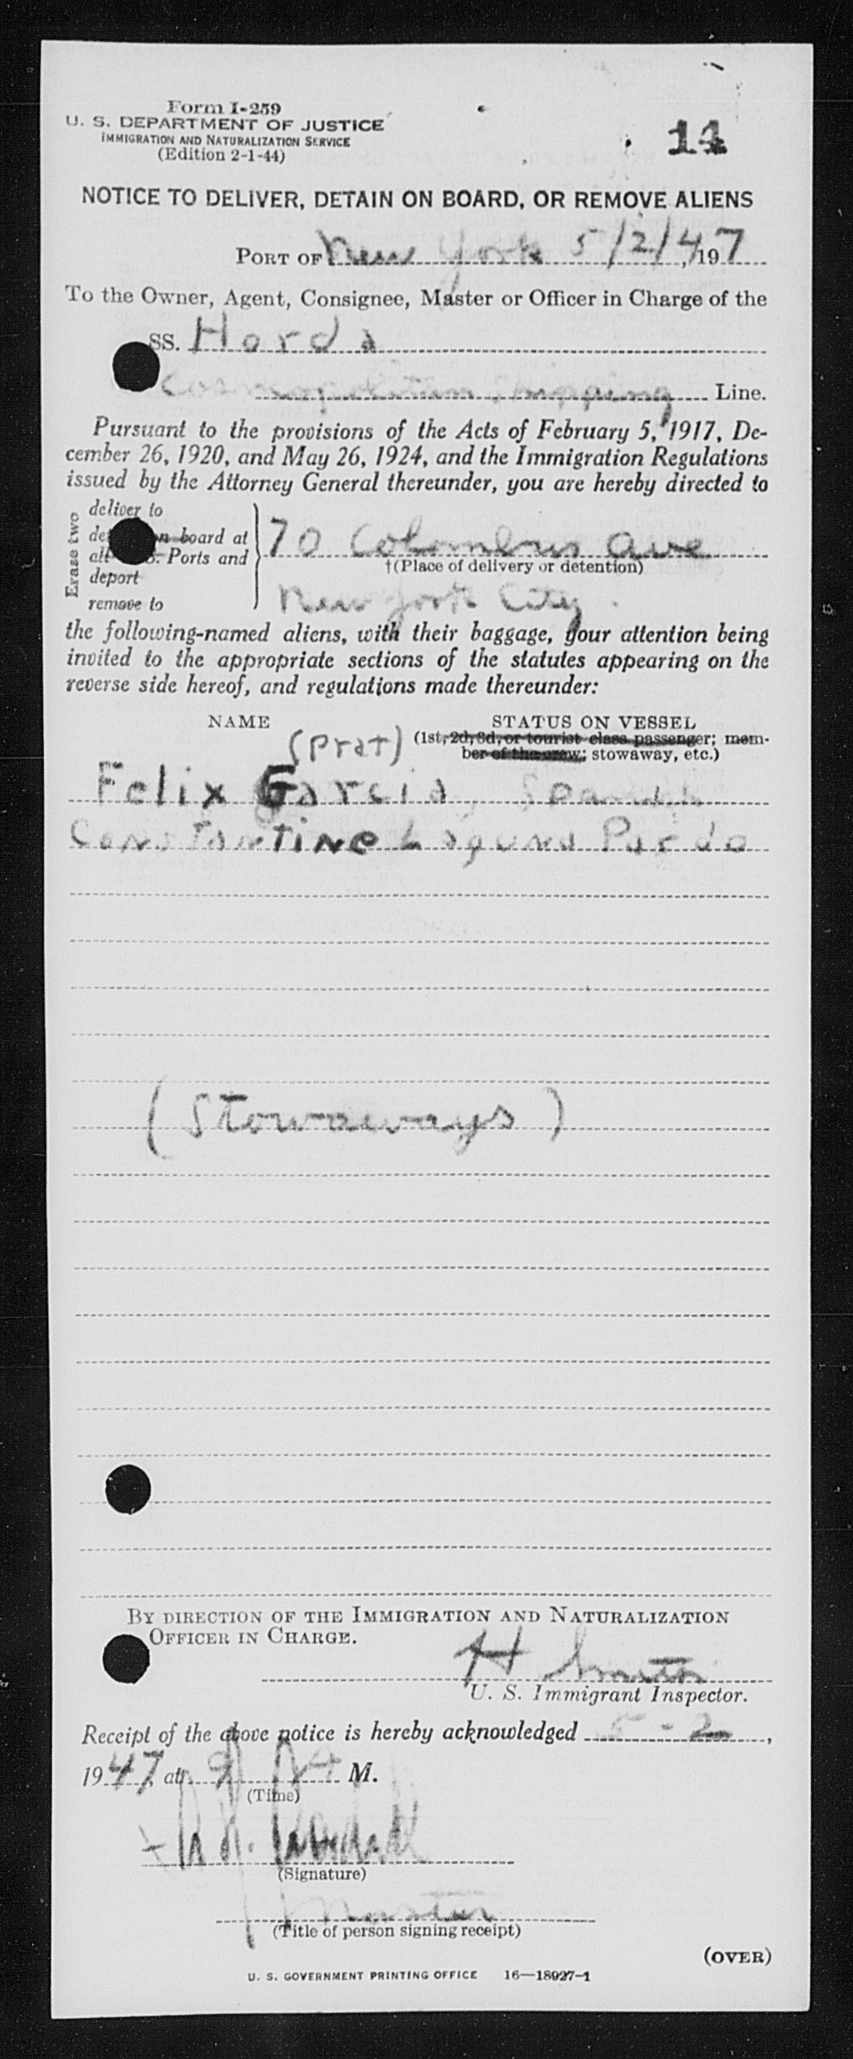 Form I-259
U. S. DEPARTMENT OF JUSTICE
IMMIGRATION AND NATURALIZATION SERVICE
(Edition 2-1-44)
11
NOTICE TO DELIVER, DETAIN ON BOARD, OR REMOVE ALIENS
PORT OF New York 5/2/4, 197
To the Owner, Agent, Consignee, Master or Officer in Charge of the
SS. Horda
Cosmopolitan Shipping Line.
Pursuant to the provisions of the Acts of February 5, 1917, De-
cember 26, 1920, and May 26, 1924, and the Immigration Regulations
issued by the Attorney General thereunder, you are hereby directed to
Erase two
deliver to
n board at
all Ports and
deport
remove to
70 Columbus Ave
†(Place of delivery or detention)
New York City.
the following-named aliens, with their baggage, your attention being
invited to the appropriate sections of the statutes appearing on the
reverse side hereof, and regulations made thereunder:
NAME STATUS ON VESSEL
(Prat) (1st, 2d, 3d, or tourist class passenger; mem-
ber of the crew; stowaway, etc.)
Felix Garcia, Spanish
Constantine Laguna Pardo
(Stowaways)
BY DIRECTION OF THE IMMIGRATION AND NATURALIZATION
OFFICER IN CHARGE.
H Smith
U. S. Immigrant Inspector.
Receipt of the above notice is hereby acknowledged 5-2,
1947, at 9 M.
(Time)
(Signature)
Master
(Title of person signing receipt)
(OVER)
U. S. GOVERNMENT PRINTING OFFICE 16—18927-1